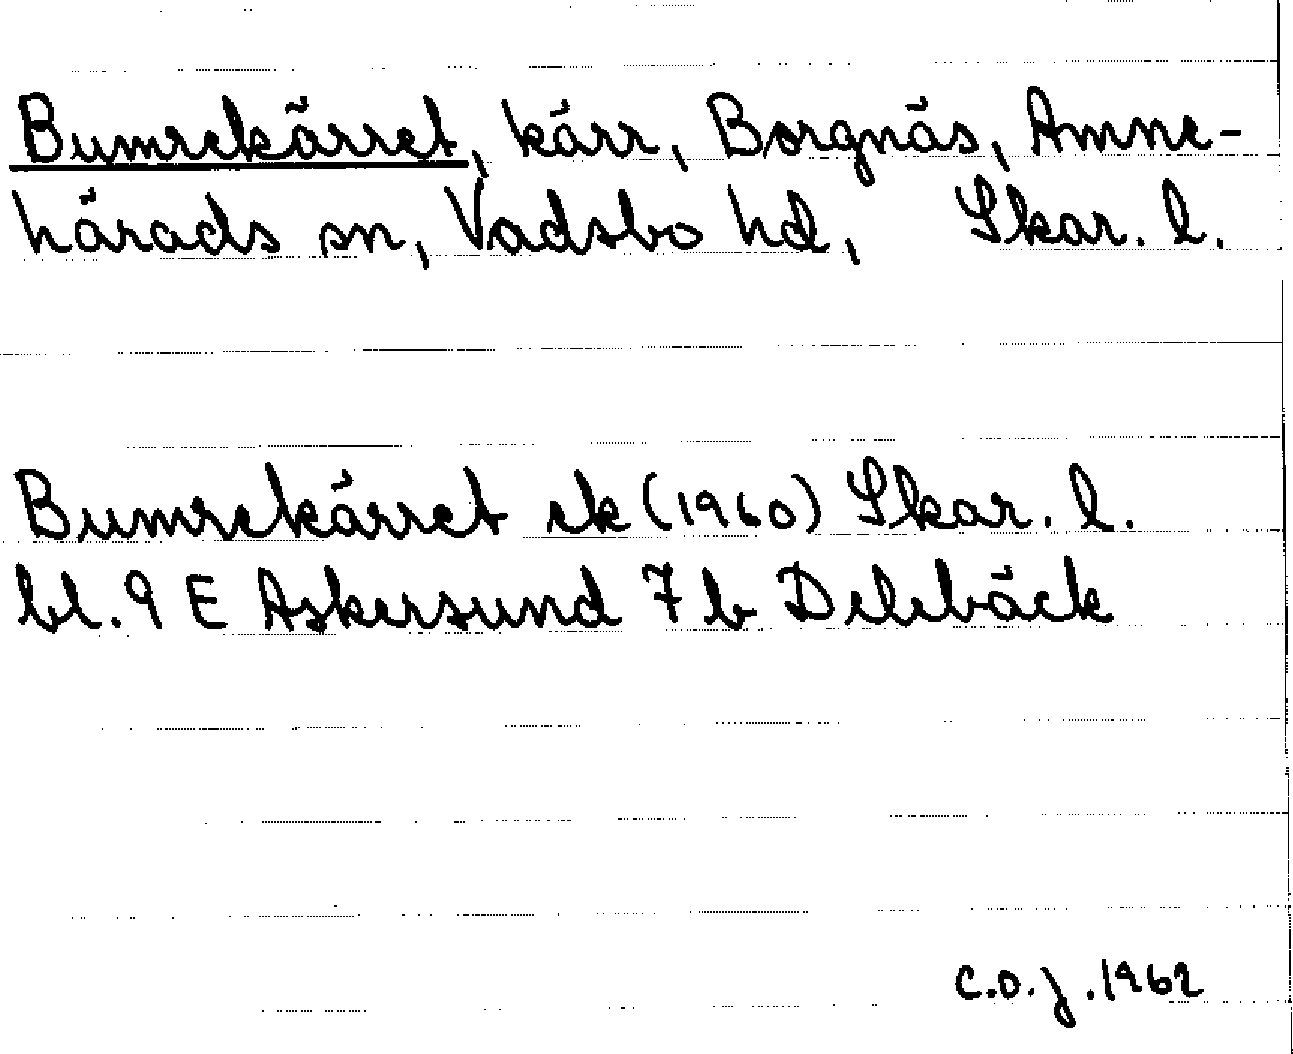 Bumrekärret, kärr, Borgnäs, Amne-
härads sn, Vadsbo hd, Skar. l.
Bumrekärret ek (1960) Skar. l.
bl. 9 E Askersund 7 b Delebäck
C.O.J. 1962